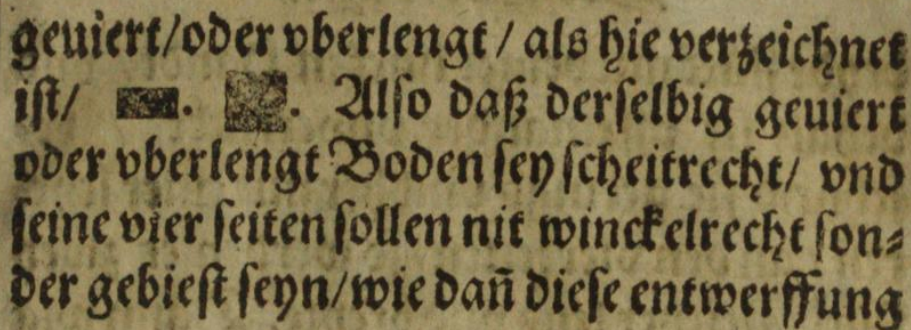 geuiert/oder vberlengt / als hie verzeichnet
ist/ ▬. ■. Also daß derselbig geuiert
oder vberlengt Boden sey scheitrecht/ vnd
seine vier seiten sollen nit winckelrecht son⸗
der gebiest seyn/wie dañ diese entwerffung